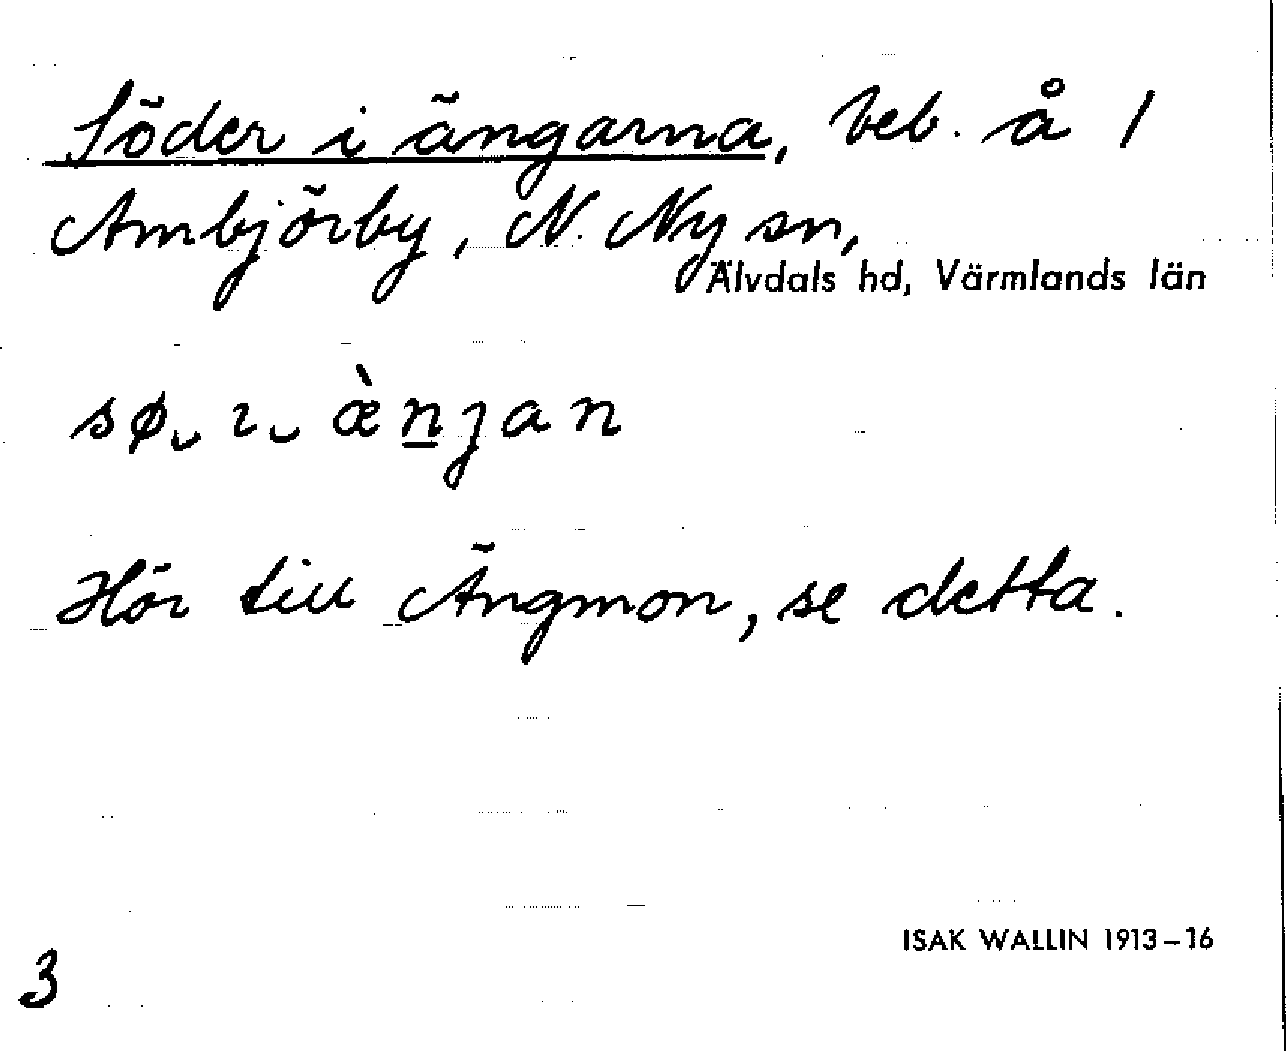 Söder i ängarna, beb. å 1
Ambjörby, N. Ny sn,
Älvdals hd, Värmlands län
sø ı æ̀n̲jan
Hör till Ängmon, se detta.
ISAK WALLIN 1913–16
3